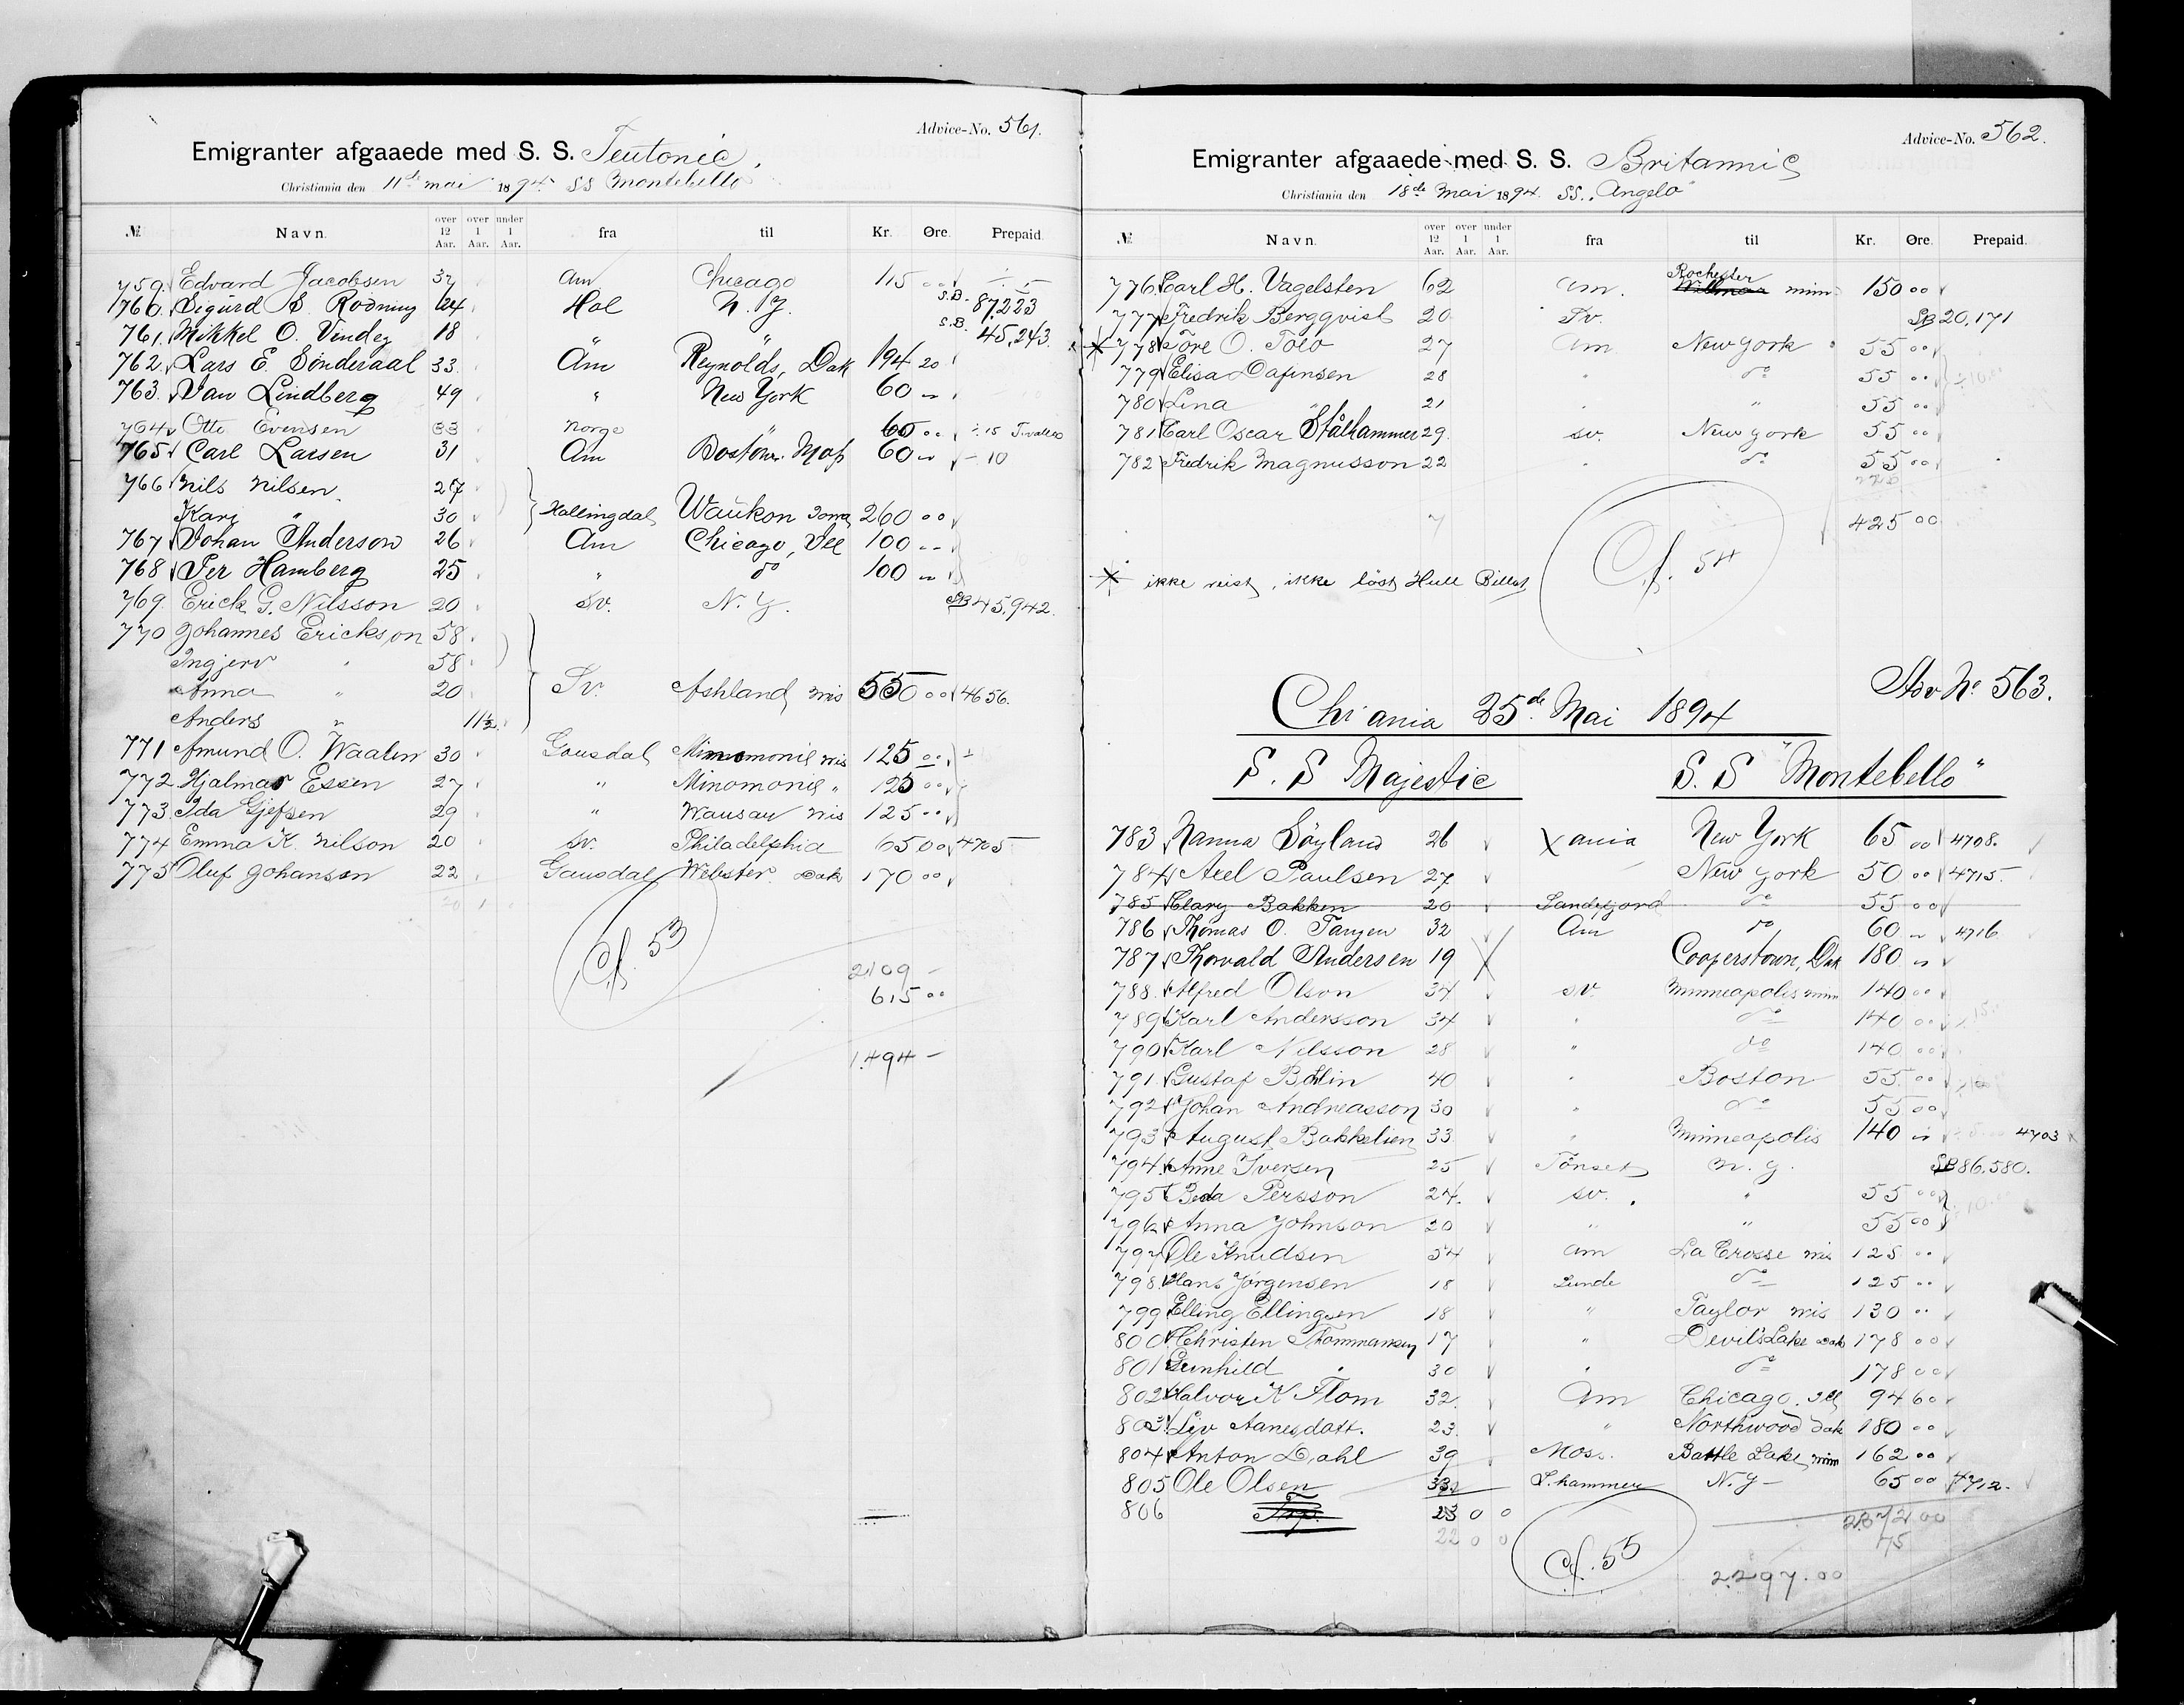 Advice-No. 561.
Emigranter afgaaede med S. S. Teutonic,
Christiania den 11te mai 1894. SS Montebello
№ Navn. over 12 Aar. over 1 Aar. under 1 Aar. fra til Kr. Øre. Prepaid.
759. Edvard Jacobsen 37 Am Chicago 115 00
760. Sigurd S. Rodning 24 Hal N. Y. S.B. 87,223
761. Mikkel O. Vindeg 18 " " S.B. 45,243.
762. Lars E. Sönderaal 33 Am Reynolds, Dak 194 20
763. Dan Lindberg 49 " New York 60 "
764 Otto Evensen 33 Norge " 60 00
765 Carl Larsen 31 Am Boston Mass 60 " – 10
766 Nils Nilsen 27
Kari " 30 Hallingdal Waukon Iowa 260 00
767 Johan Anderson 26 Am Chicago, Ill 100 00
768 Per Hamberg 25 " do 100 "
769. Erick G. Nilsson 20 Sv. N. Y. SB 45,942.
770 Johannes Erickson 58
Ingjerv " 58
Anna " 20 Sv. Ashland wis 550 00 4656.
Anders " 11½
771 Amund O. Waalen 30 Gausdal Minomonie wis 125 00
772. Hjalmar Essen 27 " Minomonie " 125 00
773. Ida Gjefsen 29 " Wausau wis 125 00
774 Emma K. Nilson 20 Sv. Philadelphia 65 00 4705
775 Oluf Johansen 22 Gausdal Webster Dak 170 00
20 1
Cf. 53
2109 –
615 00
1.494 –
Advice-No. 562.
Emigranter afgaaede med S. S. Britannic
Christiania den 18de Mai 1894. SS. "Angelo"
№ Navn. over 12 Aar. over 1 Aar. under 1 Aar. fra til Kr. Øre. Prepaid.
776. Carl H. Vagelsten 62 Am. Rochester Willmar minn. 150 00
777 Fredrik Bergqvist 20 Sv. SB 20,171
* 778 Tore O. Toeo 27 Am New York 55 00
779 Elisa Dafinsen 28 " do 55 00
780 Lina " 21 " " 55 00
781 Carl Oscar Stålhammer 29. sv. New York 55 00
782 Fredrik Magnusson 22 " do 55 00
7 425 00
Cf. 54
* ikke reist, ikke löst Hull Billet
Adv No 563.
Chr'ania 25de Mai 1894
S. S Majestic S. S "Montebello"
783 Nanna Söyland 26 Xania New York 65 00 4708.
784 Axel Paulsen 27 New York 50 00 4715.
785 Clary Bakken 20 Sandefjord do 55 00
786 Thomas O. Tangen 32 Am do 60 " 4716
787 Thorvald Andersen 19 Cooperstown, Dak 180 "
788. Alfred Olson 34 sv. Minneapolis minn 140 00
789 Karl Andersson 34 " do 140 00
790 Karl Nilsson 28 " do 140 00
791. Gustaf Bohlin 40 " Boston 55 00
792 Johan Andreasson 30 " do 55 00
793 August Bakkelien 33 " Minneapolis 140 " 4703
794. Anne Iversen 25 Tönset N. Y. SB 86,580.
795 Beda Persson 24. sv. " 55 00
796 Anna Johnson 20 " " 55 00
797 Ole Knudsen 54 Am La Crosse wis 125 00
798. Hans Jörgensen 18 Lunde do 125 00
799 Elling Ellingsen 18 " Taylor wis 130 00
800 Christen Thommasen 17 " Devils Lake Dak 178 00
801 Gunhild " 30 " do 178 00
802 Halvor K Flom 32. Am Chicago. Ill 94 60
803 Liv Aanesdatt. 23 " Northwood Dak 180 00
804 Anton Dahl 39 Moss. Battle Lake, minn 162 00
805 Ole Olsen 33 L.hammer N. Y – 65 00 4712.
806 23 0 0
22 0 0 2372 00
75
Cf. 55
2297.00